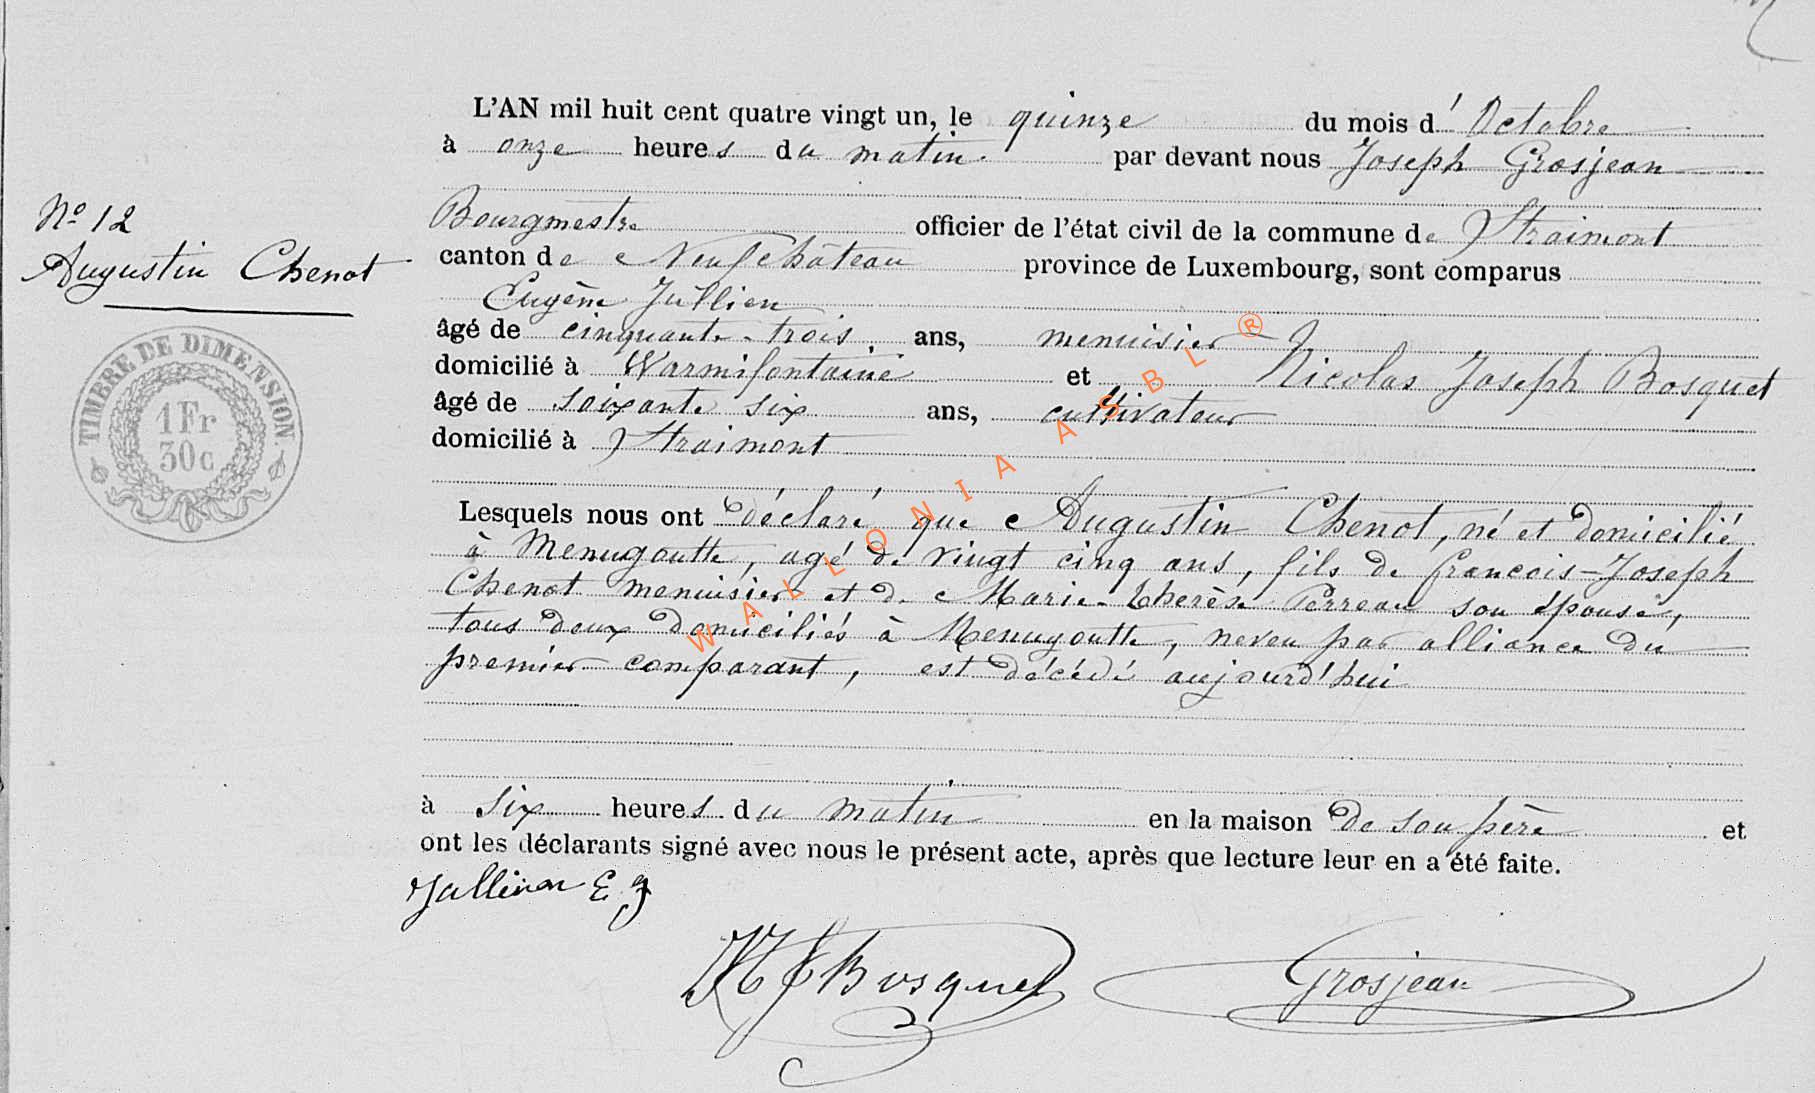 L'AN mil huit cent quatre vingt un, le quinze du mois d'Octobre
à onze heures du matin. par devant nous Joseph Grosjean
Bourgmestre officier de l'état civil de la commune de Straimont
canton de Neufchâteau province de Luxembourg, sont comparus
Eugène Jullien
âgé de cinquante-trois ans, menuisier
domicilié à Warmifontaine et Nicolas Joseph Bosquet
âgé de soixante six ans, cultivateur
domicilié à Straimont
Nº 12
Augustin Chenot
TIMBRE DE DIMENSION
1 Fr
30 c
Lesquels nous ont déclaré que Augustin Chenot, né et domicilié
à Menugoutte, agé de vingt cinq ans, fils de françois-Joseph
Chenot menuisier et de Marie-Thérèse Perreau son épouse,
tous deux domiciliés à Menugoutte, neveu par alliance du
premier comparant, est décédé aujourd'hui
à six heures du matin en la maison de son père et
ont les déclarants signé avec nous le présent acte, après que lecture leur en a été faite.
Jullien E J
NJ Bosquet
Grosjean
WALLONIA ASBL®